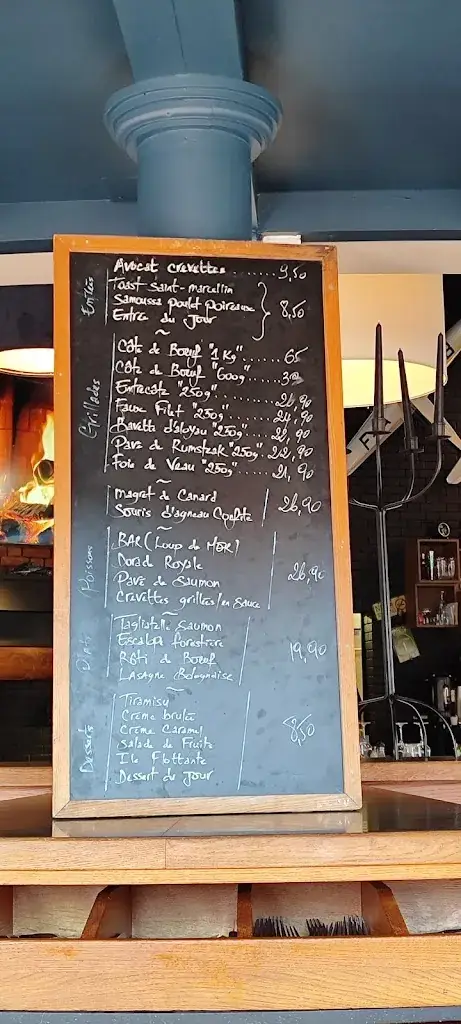 Entrées
Avocat crevettes ...... 9,50
Toast Saint-marcellin
Samoussa poulet poireaux
Entrée du Jour
8,50
~
Grillades
Côte de Bœuf "1 Kg" ...... 65
Côte de Bœuf "600g" ...... 39
Entrecôte "250g" ...... 26,90
Faux Filet "250g" ...... 24,90
Bavette d'aloyau "250g" ... 22,90
Pavé de Rumsteak "250g" . 22,90
Foie de Veau "250g" ...... 21,90
~
magret de Canard
Souris d'agneau Confite
26,90
~
Poissons
BAR (Loup de MER)
Dorade Royale
Pavé de Saumon
Crevettes grillées/en sauce
26,90
~
Plats
Tagliatelle Saumon
Escalope forestière
Rôti de Bœuf
Lasagne Bolognaise
19,90
~
Desserts
Tiramisu
Crème brulée
Crème Caramel
Salade de Fruits
Ile Flottante
Dessert du Jour
8,50